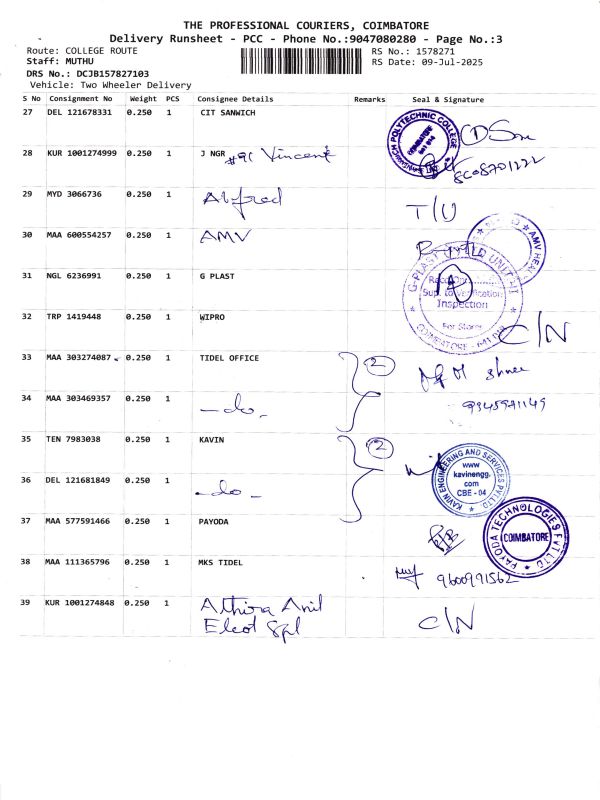 THE PROFESSIONAL COURIERS, COIMBATORE
Delivery Runsheet - PCC - Phone No.:9047080280 - Page No.:3
Route: COLLEGE ROUTE
RS No.: 1578271
Staff: MUTHU
RS Date: 09-Jul-2025
DRS No.: DCJB157827103
Vehicle: Two Wheeler Delivery
S No Consignment No Weight PCS Consignee Details Remarks Seal & Signature
27 DEL 121678331 0.250 1 CIT SANWICH
POLYTECHNIC COLLEGE
COIMBATORE
28 KUR 1001274999 0.250 1 J NGR #91 Vincent
29 MYD 3066736 0.250 1 T/U
30 MAA 600554257 0.250 1 AMV
AMV
31 NGL 6236991 0.250 1 G PLAST
G-PLAST
Inspection
For Stores
COIMBATORE - 641
32 TRP 1419448 0.250 1 WIPRO C/N
33 MAA 303274087 0.250 1 TIDEL OFFICE 2
34 MAA 303469357 0.250 1 -do-
35 TEN 7983038 0.250 1 KAVIN 2
KAVIN ENGINEERING AND SERVICES PVT LTD
www
kavinengg.
com
CBE - 04
36 DEL 121681849 0.250 1 -do-
37 MAA 577591466 0.250 1 PAYODA
PAYODA TECHNOLOGIES PVT LTD
COIMBATORE
38 MAA 111365796 0.250 1 MKS TIDEL 9600991562
39 KUR 1001274848 0.250 1 Athira Anil C/N
Elcot Spl